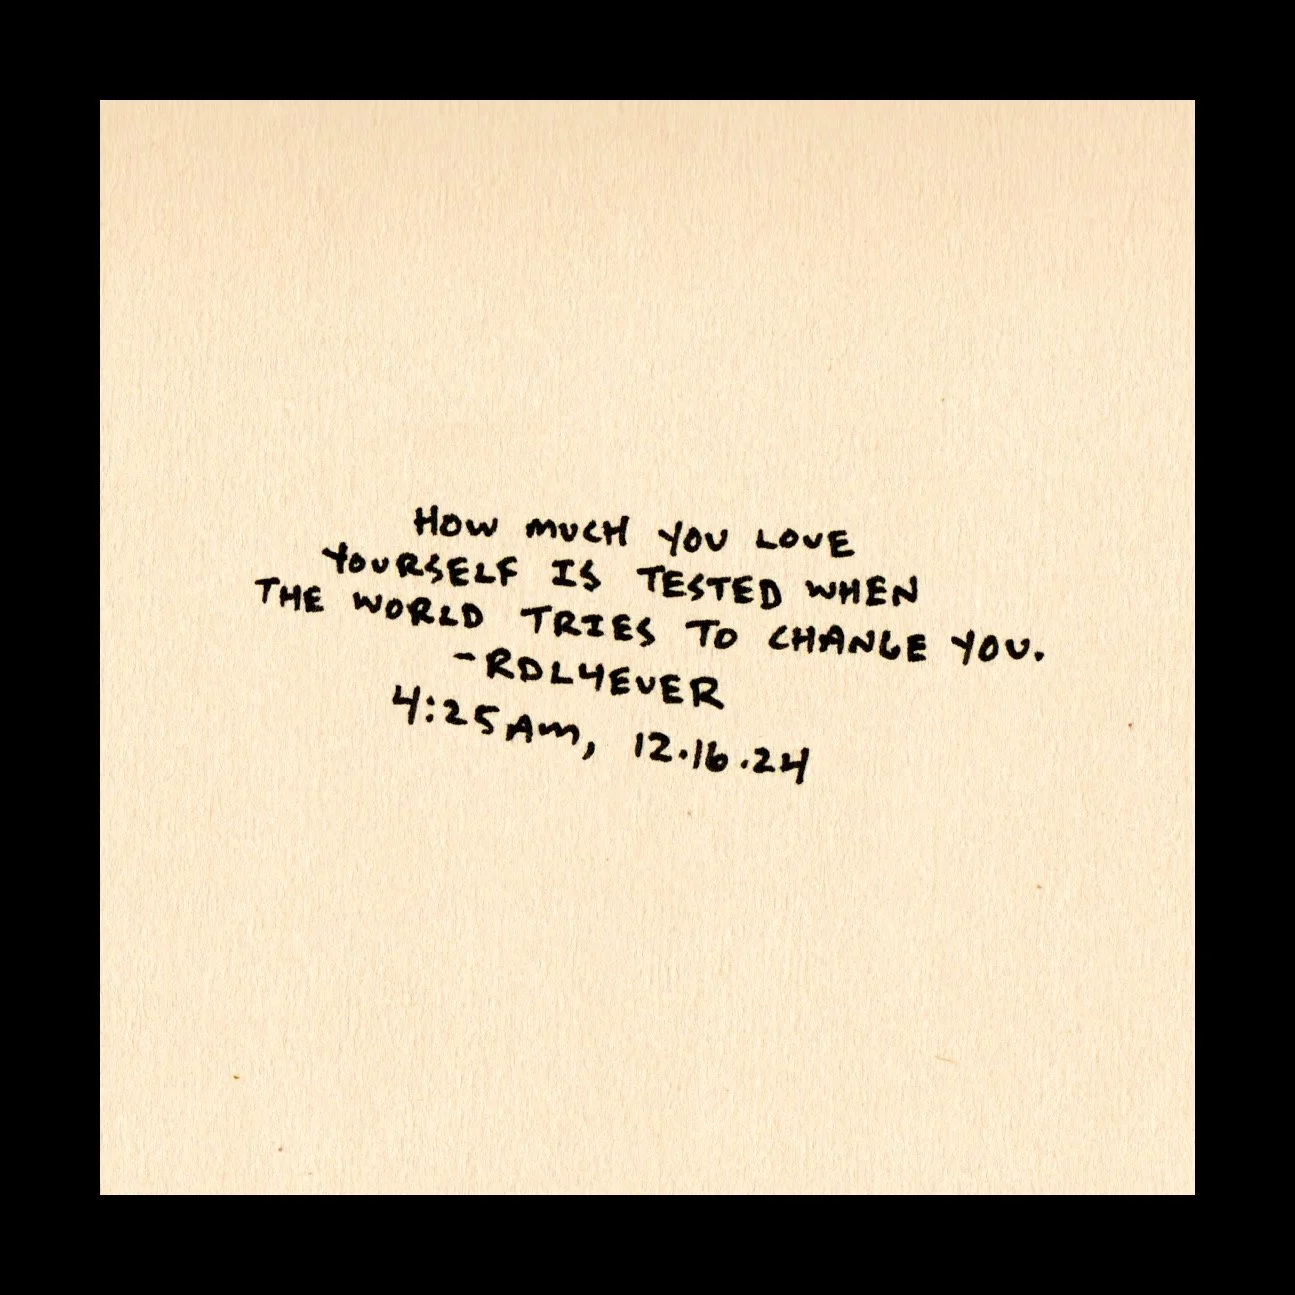 HOW MUCH YOU LOVE
YOURSELF IS TESTED WHEN
THE WORLD TRIES TO CHANGE YOU.
-RDL4EVER
4:25AM, 12.16.24